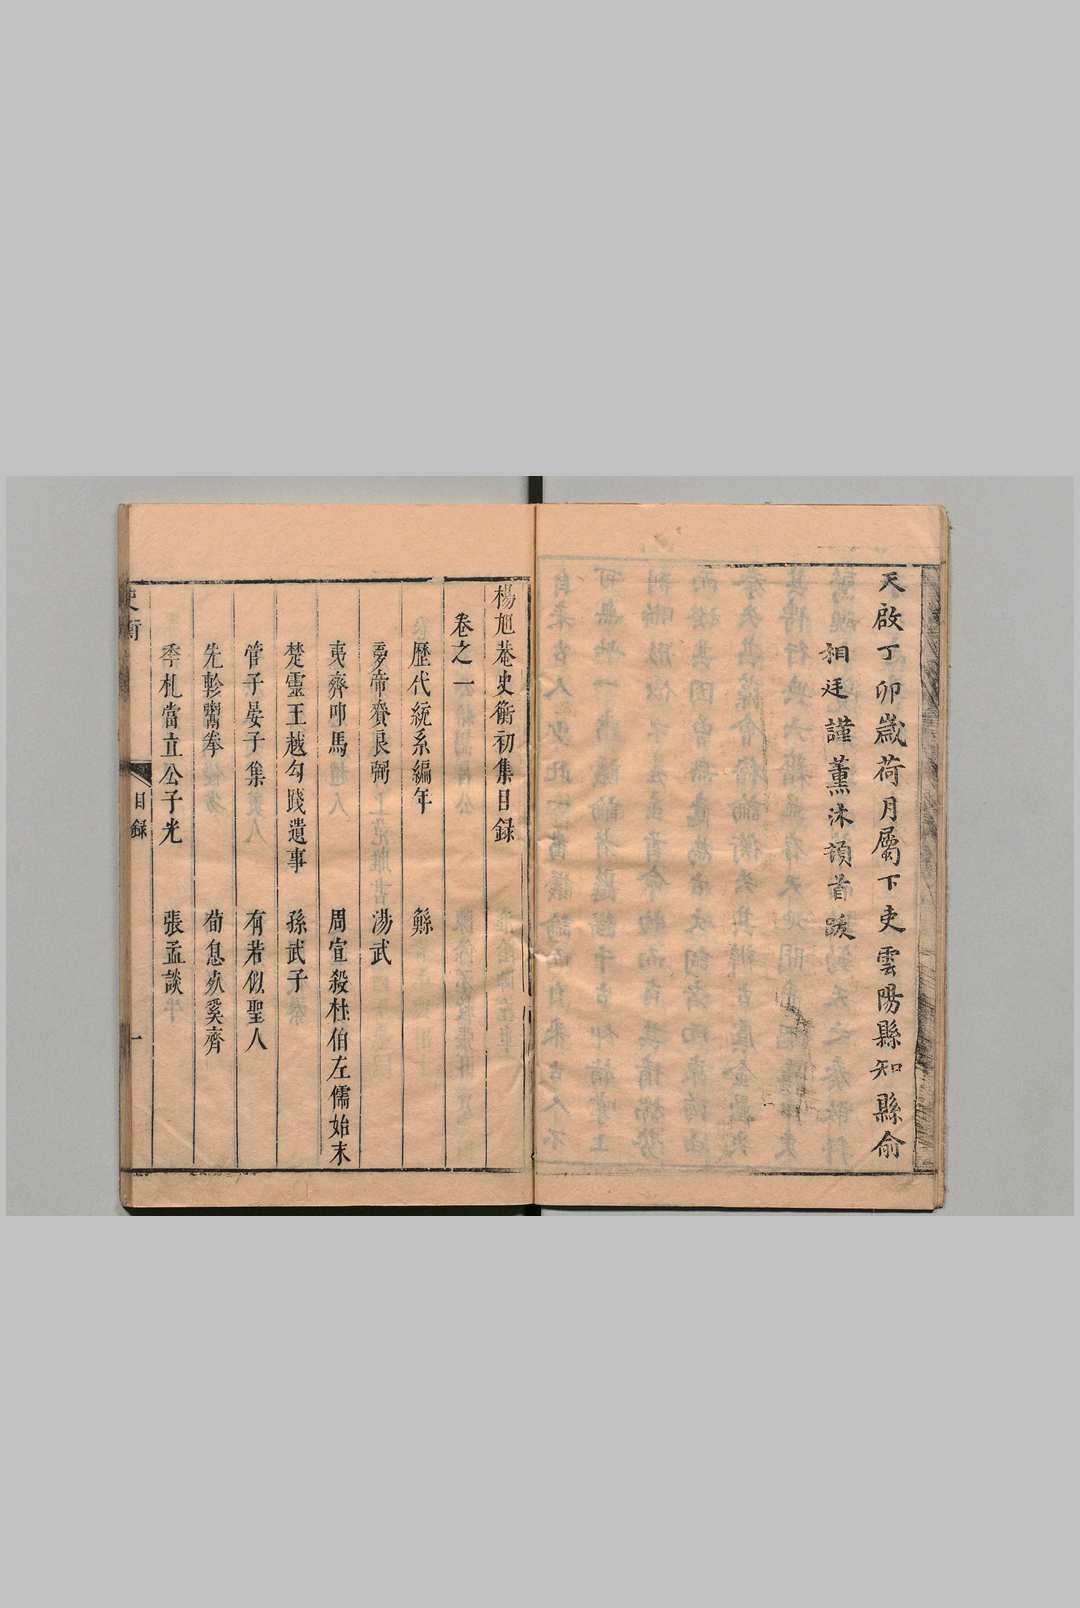 天啟丁卯歲荷月屬下吏雲陽縣知縣俞
相廷謹薰沐頓首跋
楊旭菴史衡初集目錄
卷之一
歷代統系編年　鯀
夢帝賚良弼　湯武
夷齊叩馬　周宣殺杜伯左儒始末
楚靈王越勾踐遺事　孫武子
管子晏子集　有若似聖人
先軫鬻拳　荀息奚齊
季札當立公子光　張孟談
史衡
目錄
一